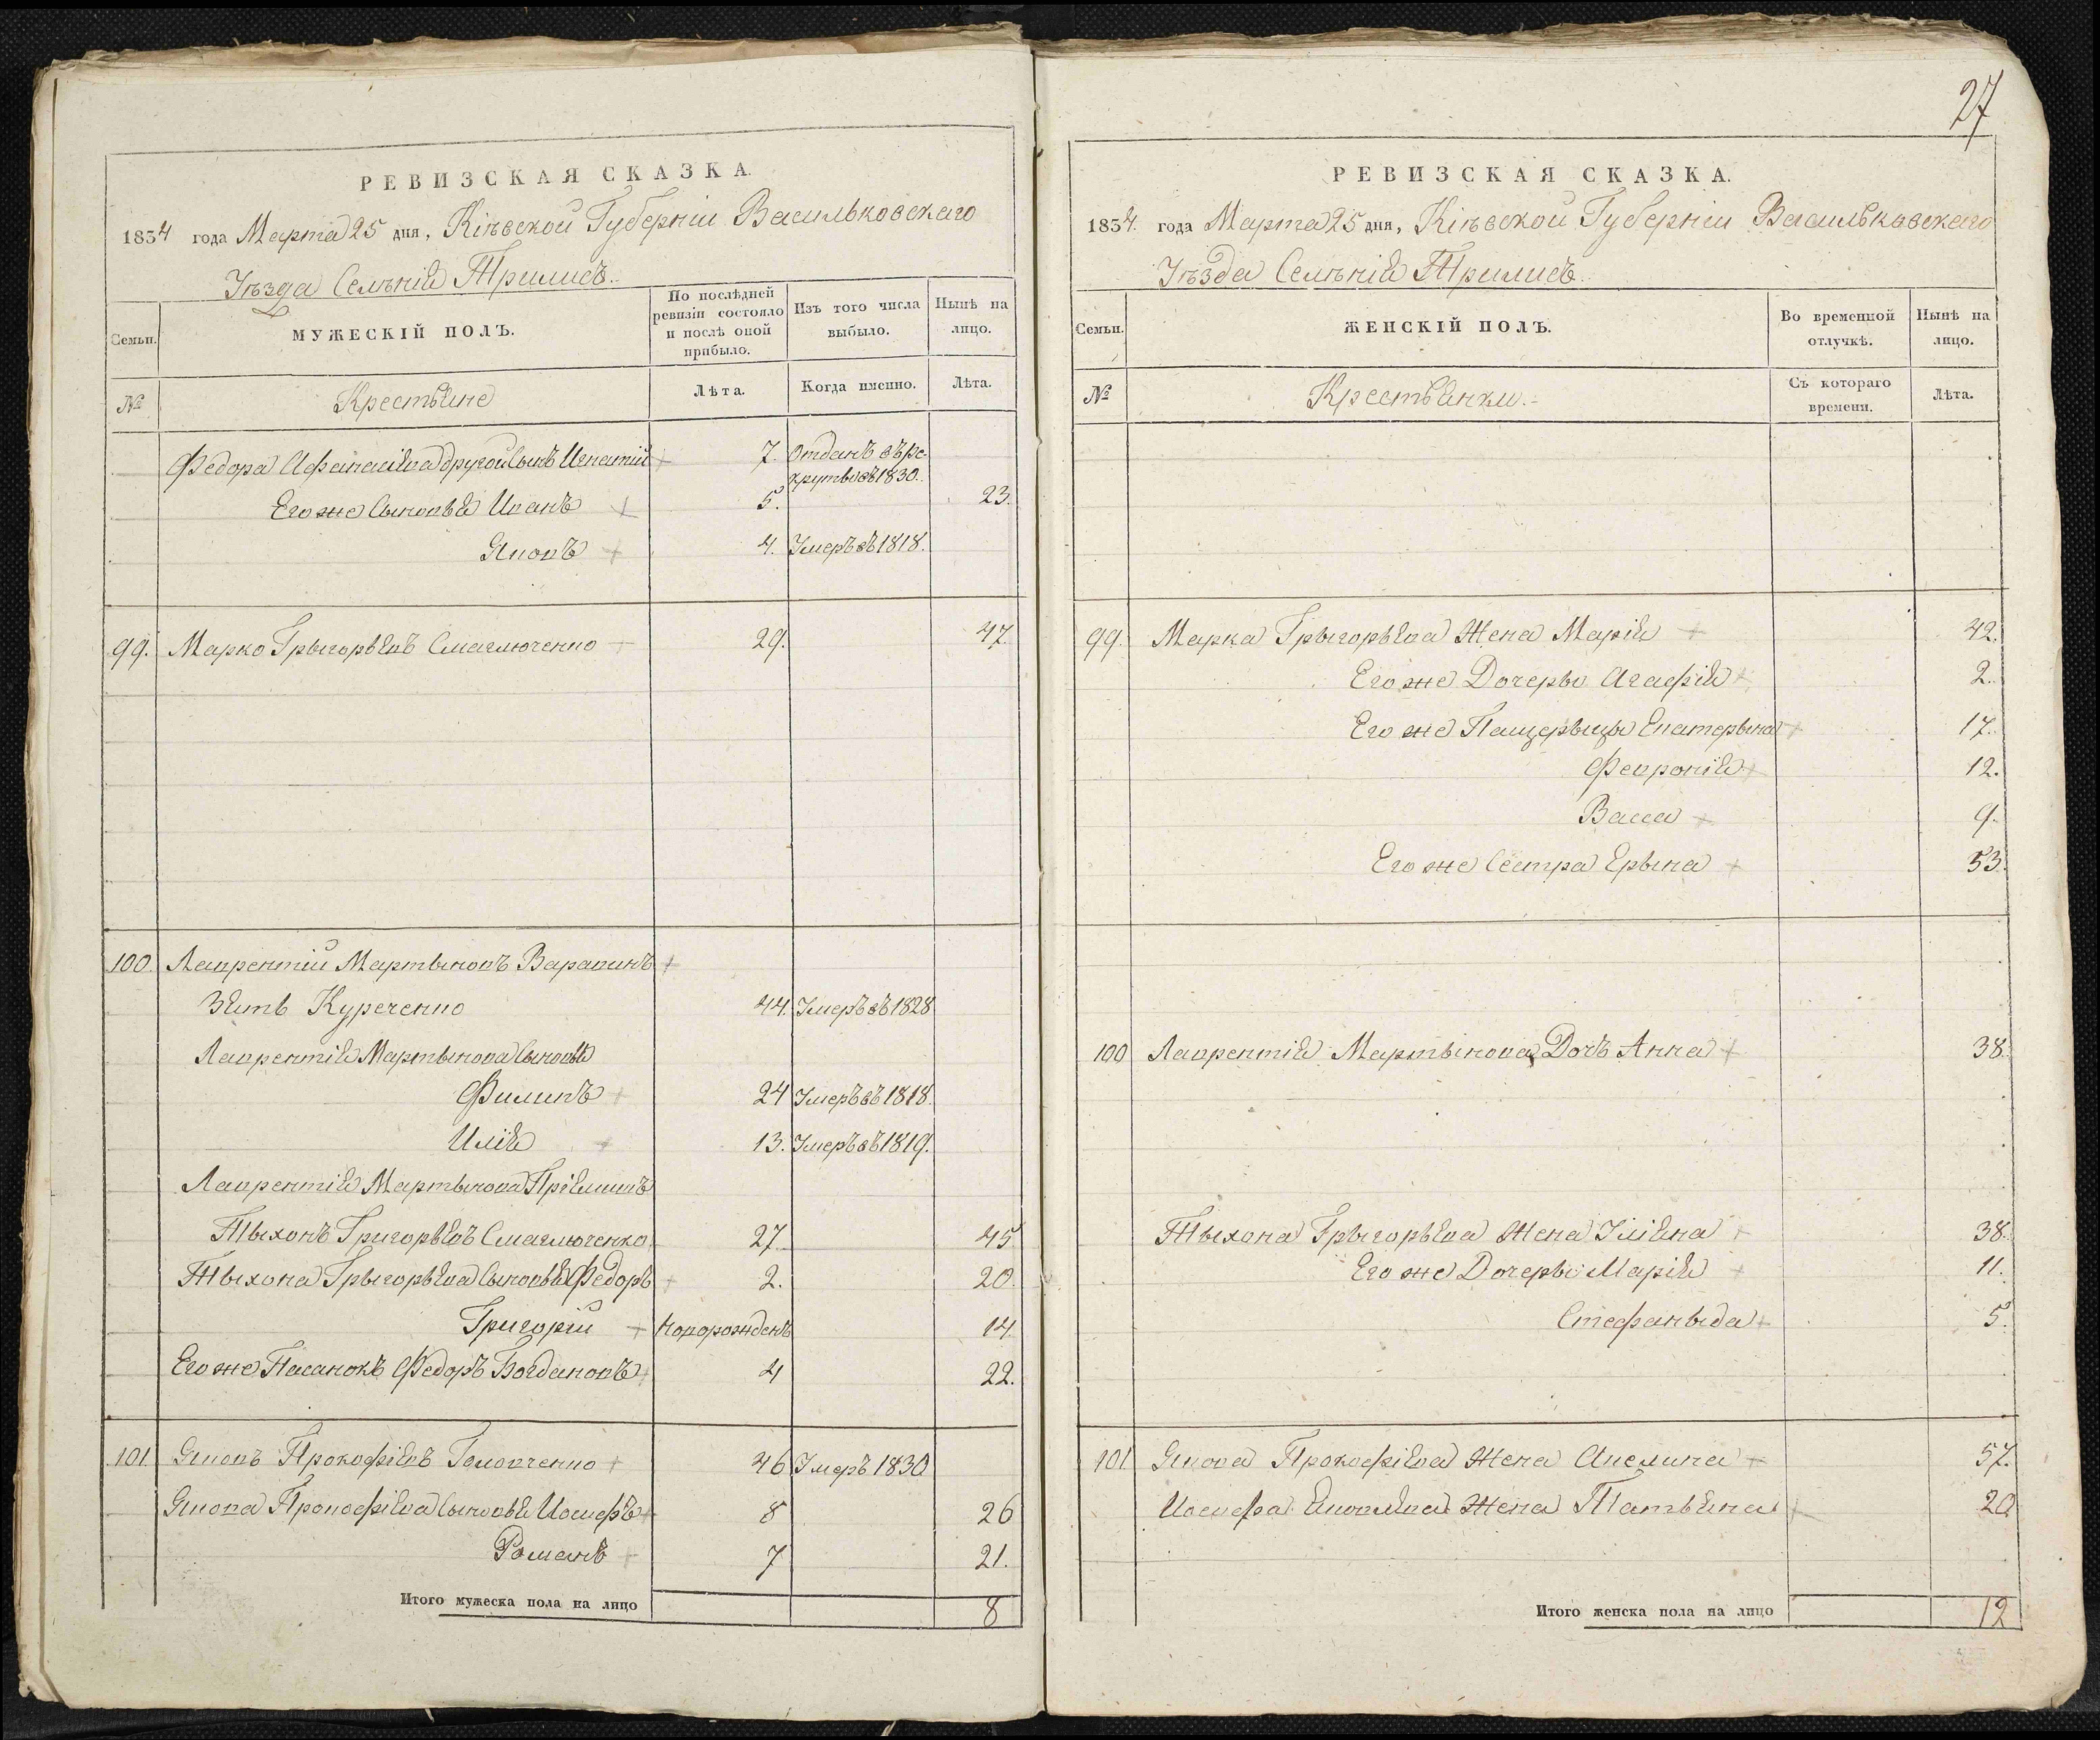 РЕВИЗСКАЯ СКАЗКА.
1834 года Марта 25 дня, Кіевской Губерніи Васильковскаго
Уѣзда Селѣнія Трилисъ.
Семьи.
МУЖЕСКІЙ ПОЛЪ.
По послѣдней ревизіи состояло и послѣ оной прибыло.
Изъ того числа выбыло.
Нынѣ на лицо.
№
Крестьяне
Лѣта.
Когда именно.
Лѣта.
Федора Афанасіева другой Сынъ Игнатій 7. Отданъ въ ре-
круты въ 1830.
Его же Сыновья Иванъ 5. 23.
Яковъ 4. Умеръ въ 1818.
99. Марко Грыгорьевъ Смаглюченко 29. 47.
100. Лаврентій Мартыновъ Варавинъ
Зять Куреченко 44. Умеръ въ 1828
Лаврентія Мартынова Сыновья
Филипъ 24 Умеръ въ 1818.
Илія 13. Умеръ въ 1819.
Лаврентія Мартынова Пріемишъ
Тыхонъ Григорьевъ Смаглюченко 27. 45
Тыхона Грыгорьева Сыновья Федоръ 2. 20.
Григорій новорожденъ 14.
Его же Пасынокъ Федоръ Богдановъ 4 22.
101 Яковъ Прокофіевъ Головченко 46 Умеръ 1830
Якова Прокофіева Сыновья Иосифъ 8 26
Романъ 7 21.
Итого мужеска пола на лицо 8
27
РЕВИЗСКАЯ СКАЗКА.
1834 года Марта 25 дня, Кіевской Губерніи Васильковскаго
Уѣзда Селѣнія Трилисъ
Семьи.
ЖЕНСКІЙ ПОЛЪ.
Во временной отлучкѣ.
Нынѣ на лицо.
№
Крестьянки.
Съ котораго времени.
Лѣта.
99. Марка Грыгорьева Жена Марія 42.
Его же Дочеры Агафія 2.
Его же Пащерыцы Екатерына 17.
Феврония 12.
Васса 9.
Его же Сестра Ерына 53.
100 Лаврентія Мартынова Дочь Анна 38.
Тыхона Грыгорьева Жена Уліяна 38.
Его же Дочеры Марія 11.
Стефаныда 5.
101 Якова Прокофіева Жена Акелина 57.
Иосифа Яковлева Жена Татьяна 20
Итого женска пола на лицо 12